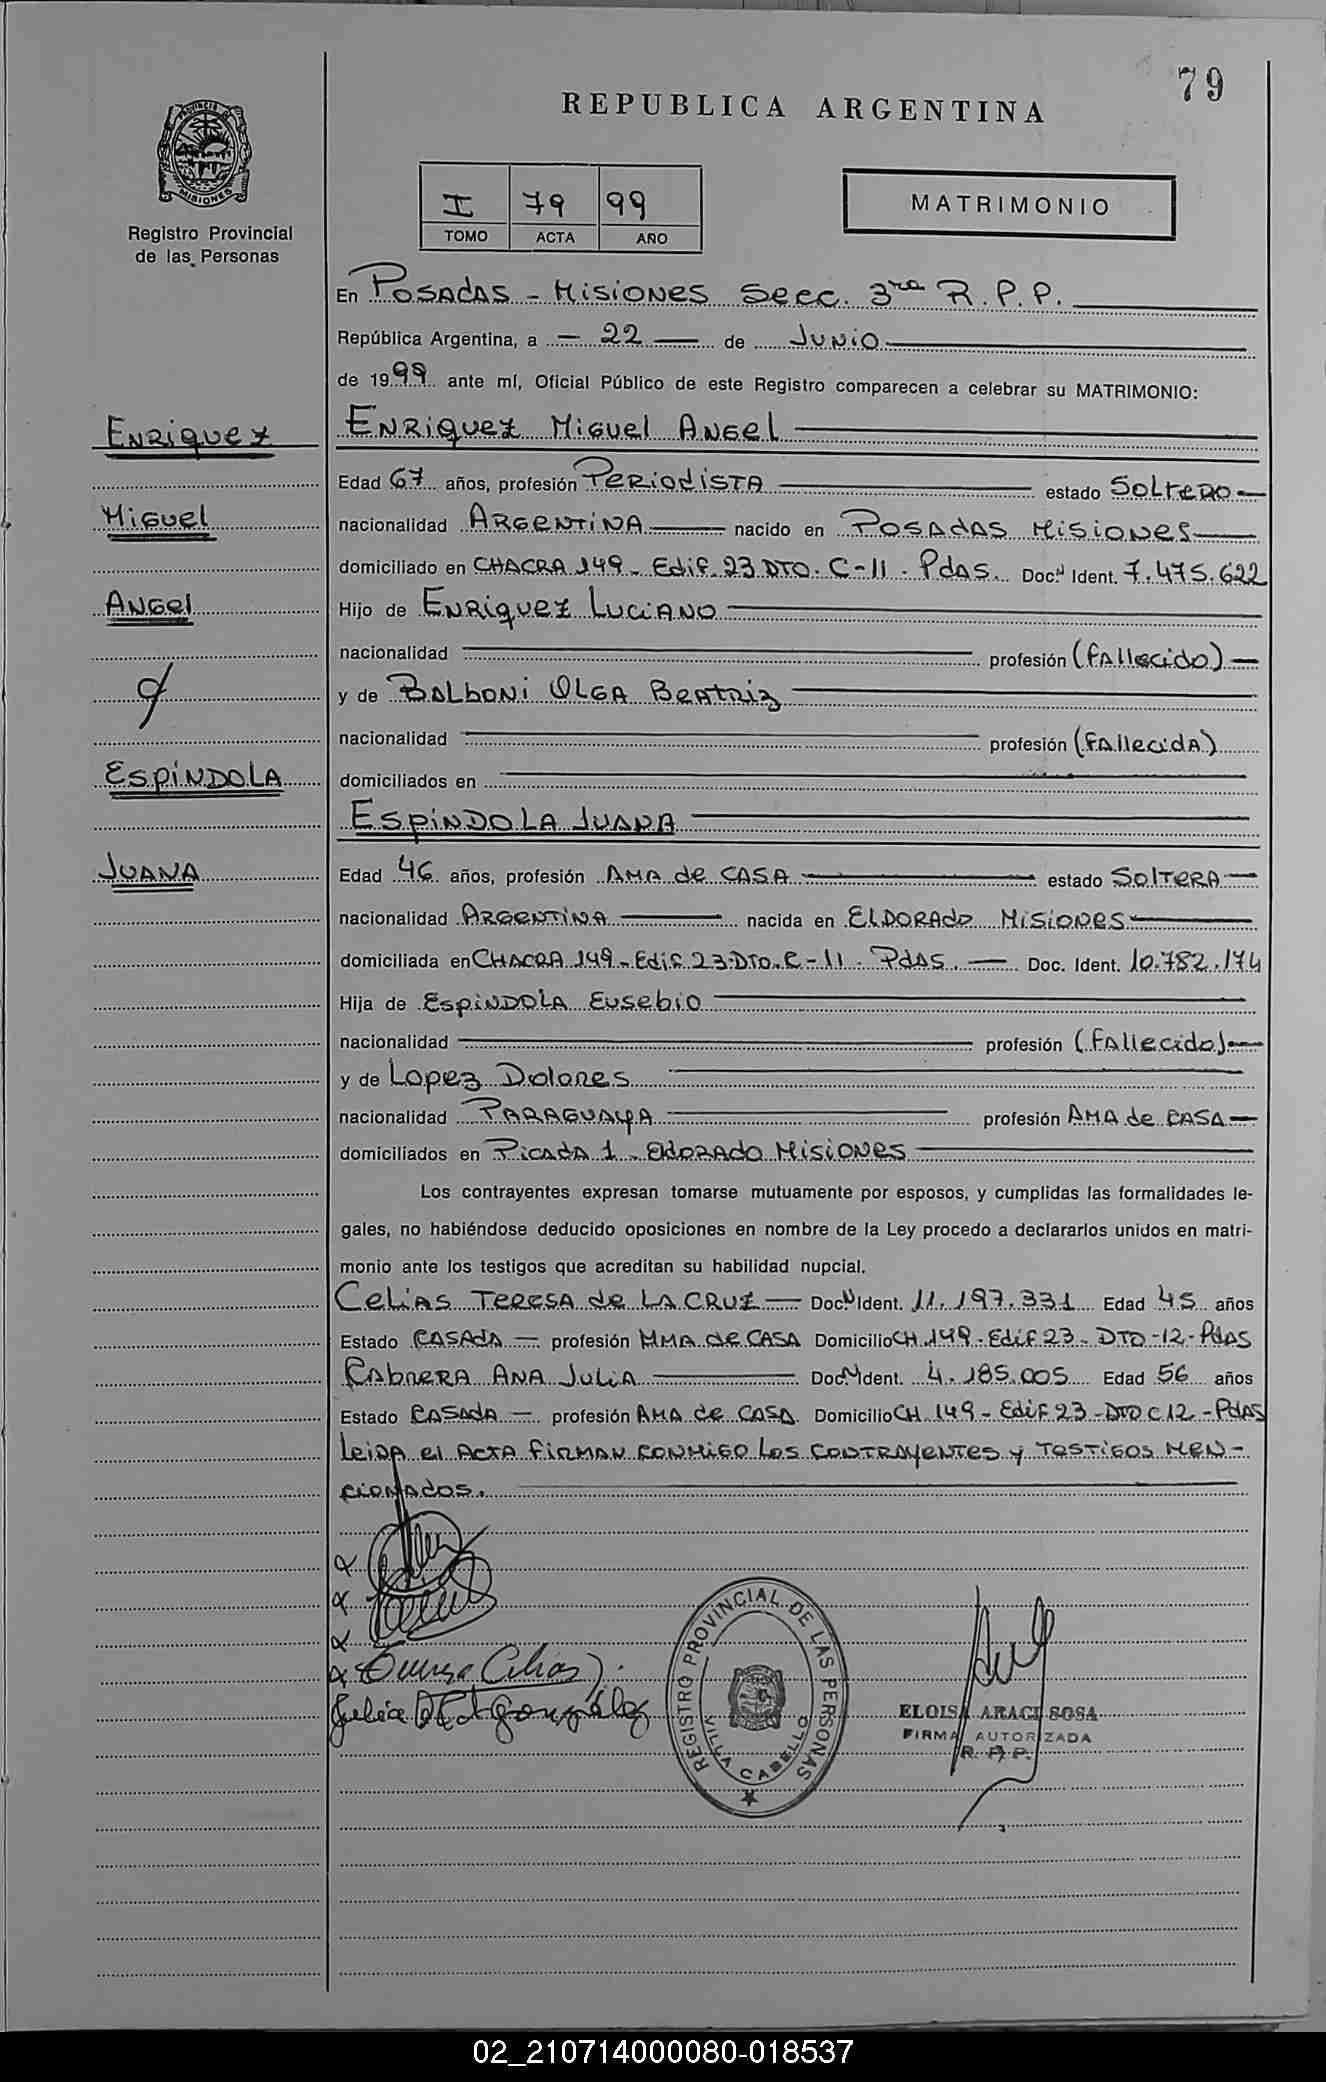 79
REPUBLICA ARGENTINA
PROVINCIA
MISIONES
Registro Provincial
de las Personas
I 79 99
TOMO ACTA AÑO
MATRIMONIO
En POSADAS - MISIONES Secc. 3ra R.P.P.
República Argentina, a - 22 - de JUNIO
de 1999 ante mí, Oficial Público de este Registro comparecen a celebrar su MATRIMONIO:
ENRIQUEZ
ENRIQUEZ MIGUEL ANGEL
Edad 67 años, profesión PERIODISTA estado SOLTERO
MIGUEL
nacionalidad ARGENTINA nacido en POSADAS MISIONES
domiciliado en CHACRA 149 - Edif. 23 DTO. C-11 - Pdas. Doc. N Ident. 7.475.622
ANGEL
Hijo de ENRIQUEZ LUCIANO
nacionalidad profesión (FALLECIDO)
y de BALBONI OLGA BEATRIZ
nacionalidad profesión (FALLECIDA)
ESPINDOLA
domiciliados en
ESPINDOLA JUANA
JUANA
Edad 46 años, profesión AMA de CASA estado SOLTERA
nacionalidad ARGENTINA nacida en ELDORADO MISIONES
domiciliada en CHACRA 149 - Edif 23 - DTO. C-11 - PdAS. Doc. Ident. 10.782.174
Hija de ESPINDOLA EUSEBIO
nacionalidad profesión (FALLECIDO)
y de LOPEZ DOLORES
nacionalidad PARAGUAYA profesión AMA de CASA
domiciliados en PICADA 1 - ELDORADO MISIONES
Los contrayentes expresan tomarse mutuamente por esposos, y cumplidas las formalidades le-
gales, no habiéndose deducido oposiciones en nombre de la Ley procedo a declararlos unidos en matri-
monio ante los testigos que acreditan su habilidad nupcial.
CELIAS TERESA de LA CRUZ - Doc. N Ident. 11.197.331 Edad 45 años
Estado CASADA - profesión AMA de CASA Domicilio CH. 149 - Edif 23 - DTO - 12 - PdAS
CABRERA ANA JULIA Doc. N Ident. 4.185.005 Edad 56 años
Estado CASADA - profesión AMA de CASA Domicilio CH. 149 - Edif 23 - DTO C 12 - PdAS
LEIDA el ACTA FIRMAN CONMIGO LOS CONTRAYENTES y TESTIGOS MEN-
CIONADOS.
REGISTRO PROVINCIAL DE LAS PERSONAS
VILLA CABELLO
ELOISA ARACI SOSA
FIRMA AUTORIZADA
R. P. P.
02_210714000080-018537